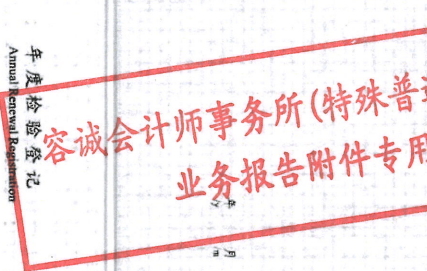 年度检验登记
Annual Renewal Registration
容诚会计师事务所(特殊普通
业务报告附件专用
年 月
y m